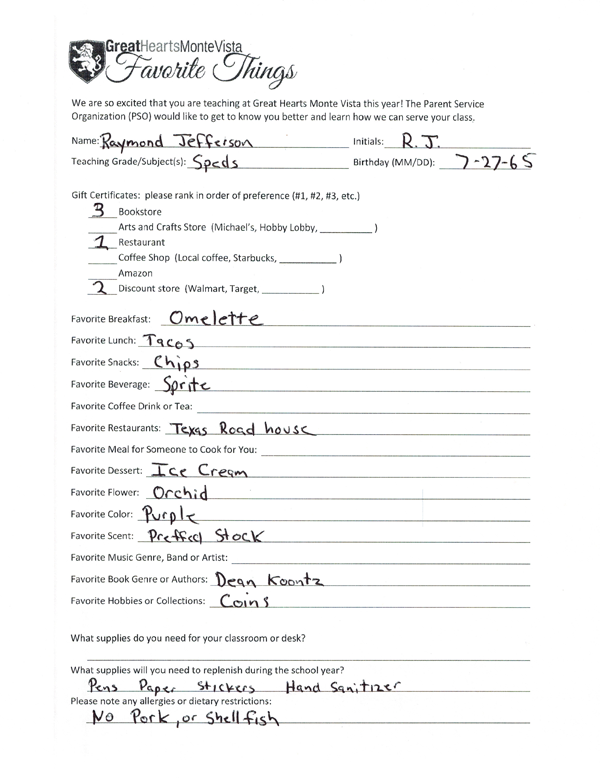 GreatHeartsMonteVista
Favorite Things
We are so excited that you are teaching at Great Hearts Monte Vista this year! The Parent Service
Organization (PSO) would like to get to know you better and learn how we can serve your class.
Name: Raymond Jefferson Initials: R.J.
Teaching Grade/Subject(s): Speds Birthday (MM/DD): 7-27-65
Gift Certificates: please rank in order of preference (#1, #2, #3, etc.)
3 Bookstore
____ Arts and Crafts Store (Michael's, Hobby Lobby, __________ )
1 Restaurant
____ Coffee Shop (Local coffee, Starbucks, ___________ )
____ Amazon
2 Discount store (Walmart, Target, ___________ )
Favorite Breakfast: Omelette
Favorite Lunch: Tacos
Favorite Snacks: Chips
Favorite Beverage: Sprite
Favorite Coffee Drink or Tea:
Favorite Restaurants: Texas Road house
Favorite Meal for Someone to Cook for You:
Favorite Dessert: Ice Cream
Favorite Flower: Orchid
Favorite Color: Purple
Favorite Scent: Preffed Stock
Favorite Music Genre, Band or Artist:
Favorite Book Genre or Authors: Dean Koontz
Favorite Hobbies or Collections: Coins
What supplies do you need for your classroom or desk?
What supplies will you need to replenish during the school year?
Pens Paper Stickers Hand Sanitizer
Please note any allergies or dietary restrictions:
No Pork, or Shellfish